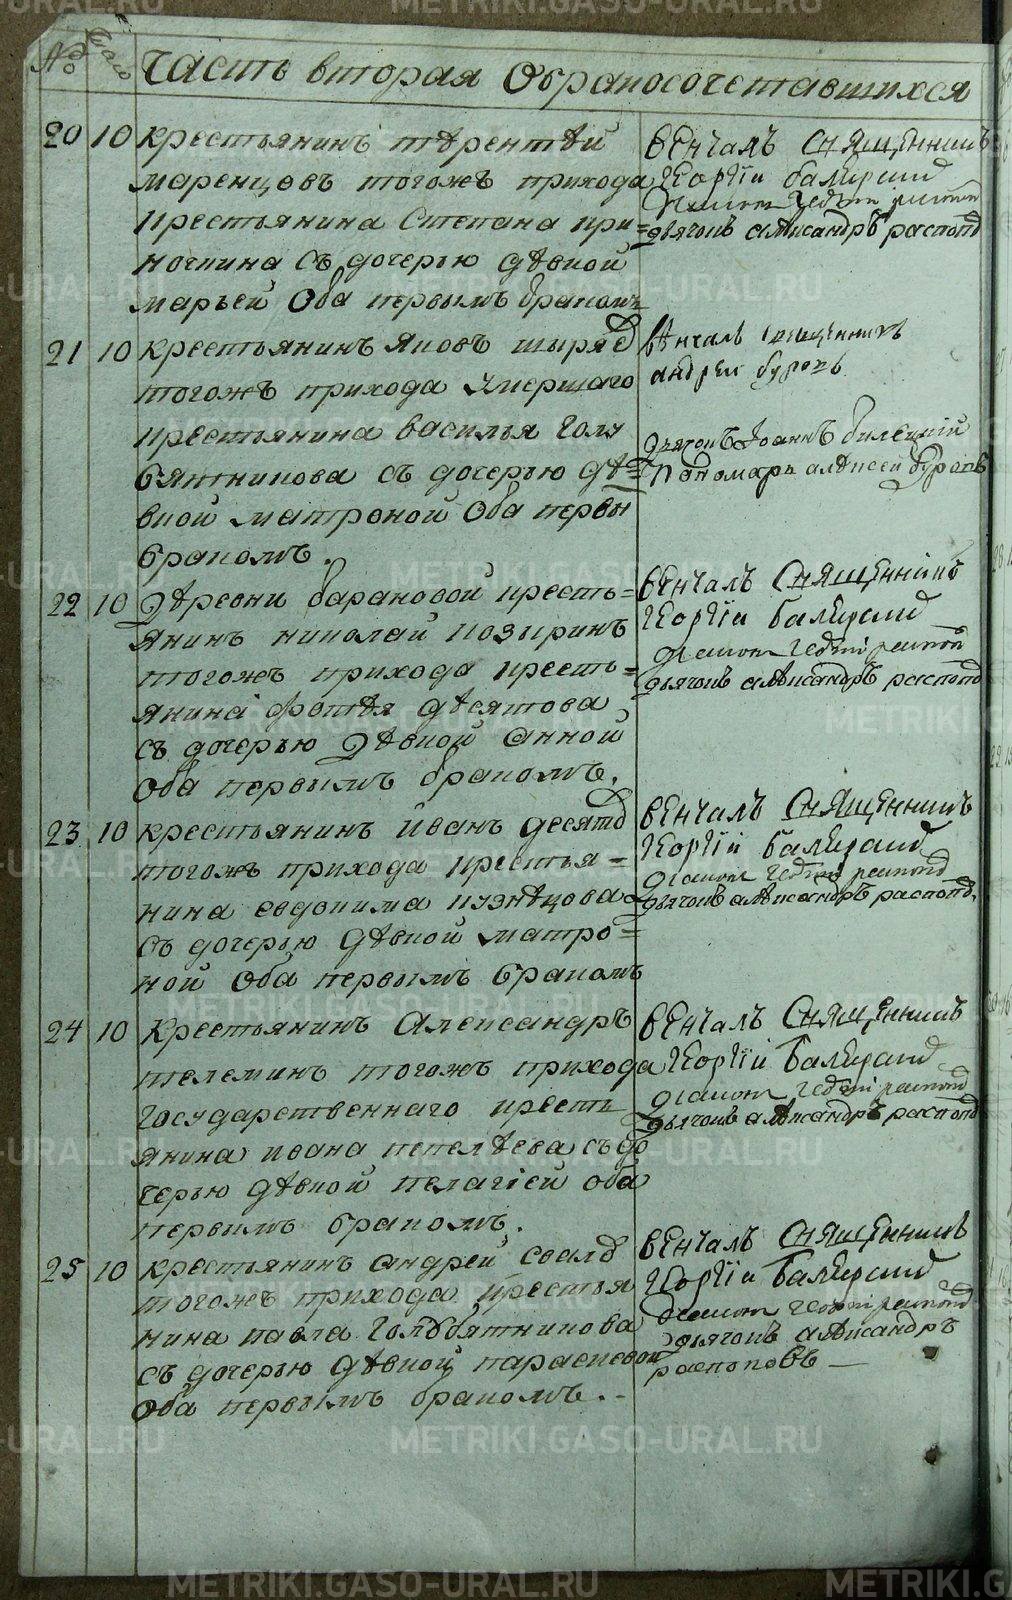 № число Часть вторая О бракосочетавшихся
20 10 крестьянинъ терентей
маренцовъ тогожъ прихода
крестьянина Степана кри=
ночкина съ дочерью дѣвкой
марьей Оба первымъ бракомъ
венчалъ Священникъ
Георгiи
дьячокъ александръ распоп
21 10 крестьянинъ яковъ ширяе
тогожъ прихода умершаго
крестьянина василья голу
бятникова съ дочерью дѣ=
вкой матроной Оба первы
бракомъ.
вѣнчалъ священникъ
андреи буровъ
дьяконъ Iоаннъ билецкiй
Пономарь алексей буровъ
22 10 Деревни барановой кресть=
янинъ николай козыринъ
тогожъ прихода кресть=
янина фотѣя десятова
съ дочерью дѣвкой анной
Оба первымъ бракомъ.
венчалъ Священникъ
Георгiи
дьячокъ александръ распоп
23 10 крестьянинъ иванъ десято
тогожъ прихода крестья=
нина евдокима кузнѣцова
съ дочерью дѣвкой матро=
ной Оба первымъ бракомъ
венчалъ Священникъ
Георгiй
дьячокъ александръ распоп.
24 10 крестьянинъ Александръ
телеминъ тогожъ прихода
государственнаго кресть
янина ивана пепелѣева съ до
черью дѣвкой пелагiей оба
первымъ бракомъ.
венчалъ Священникъ
Георгiй
дьячокъ александръ распоп
25 10 крестьянинъ андрей
тогожъ прихода крестья
нина павла голубятникова
съ дочерью дѣвкой парасковой
Оба первымъ бракомъ.
венчалъ Священникъ
Георгiи
дьячокъ александръ
распоповъ
METRIKI.GASO-URAL.RU